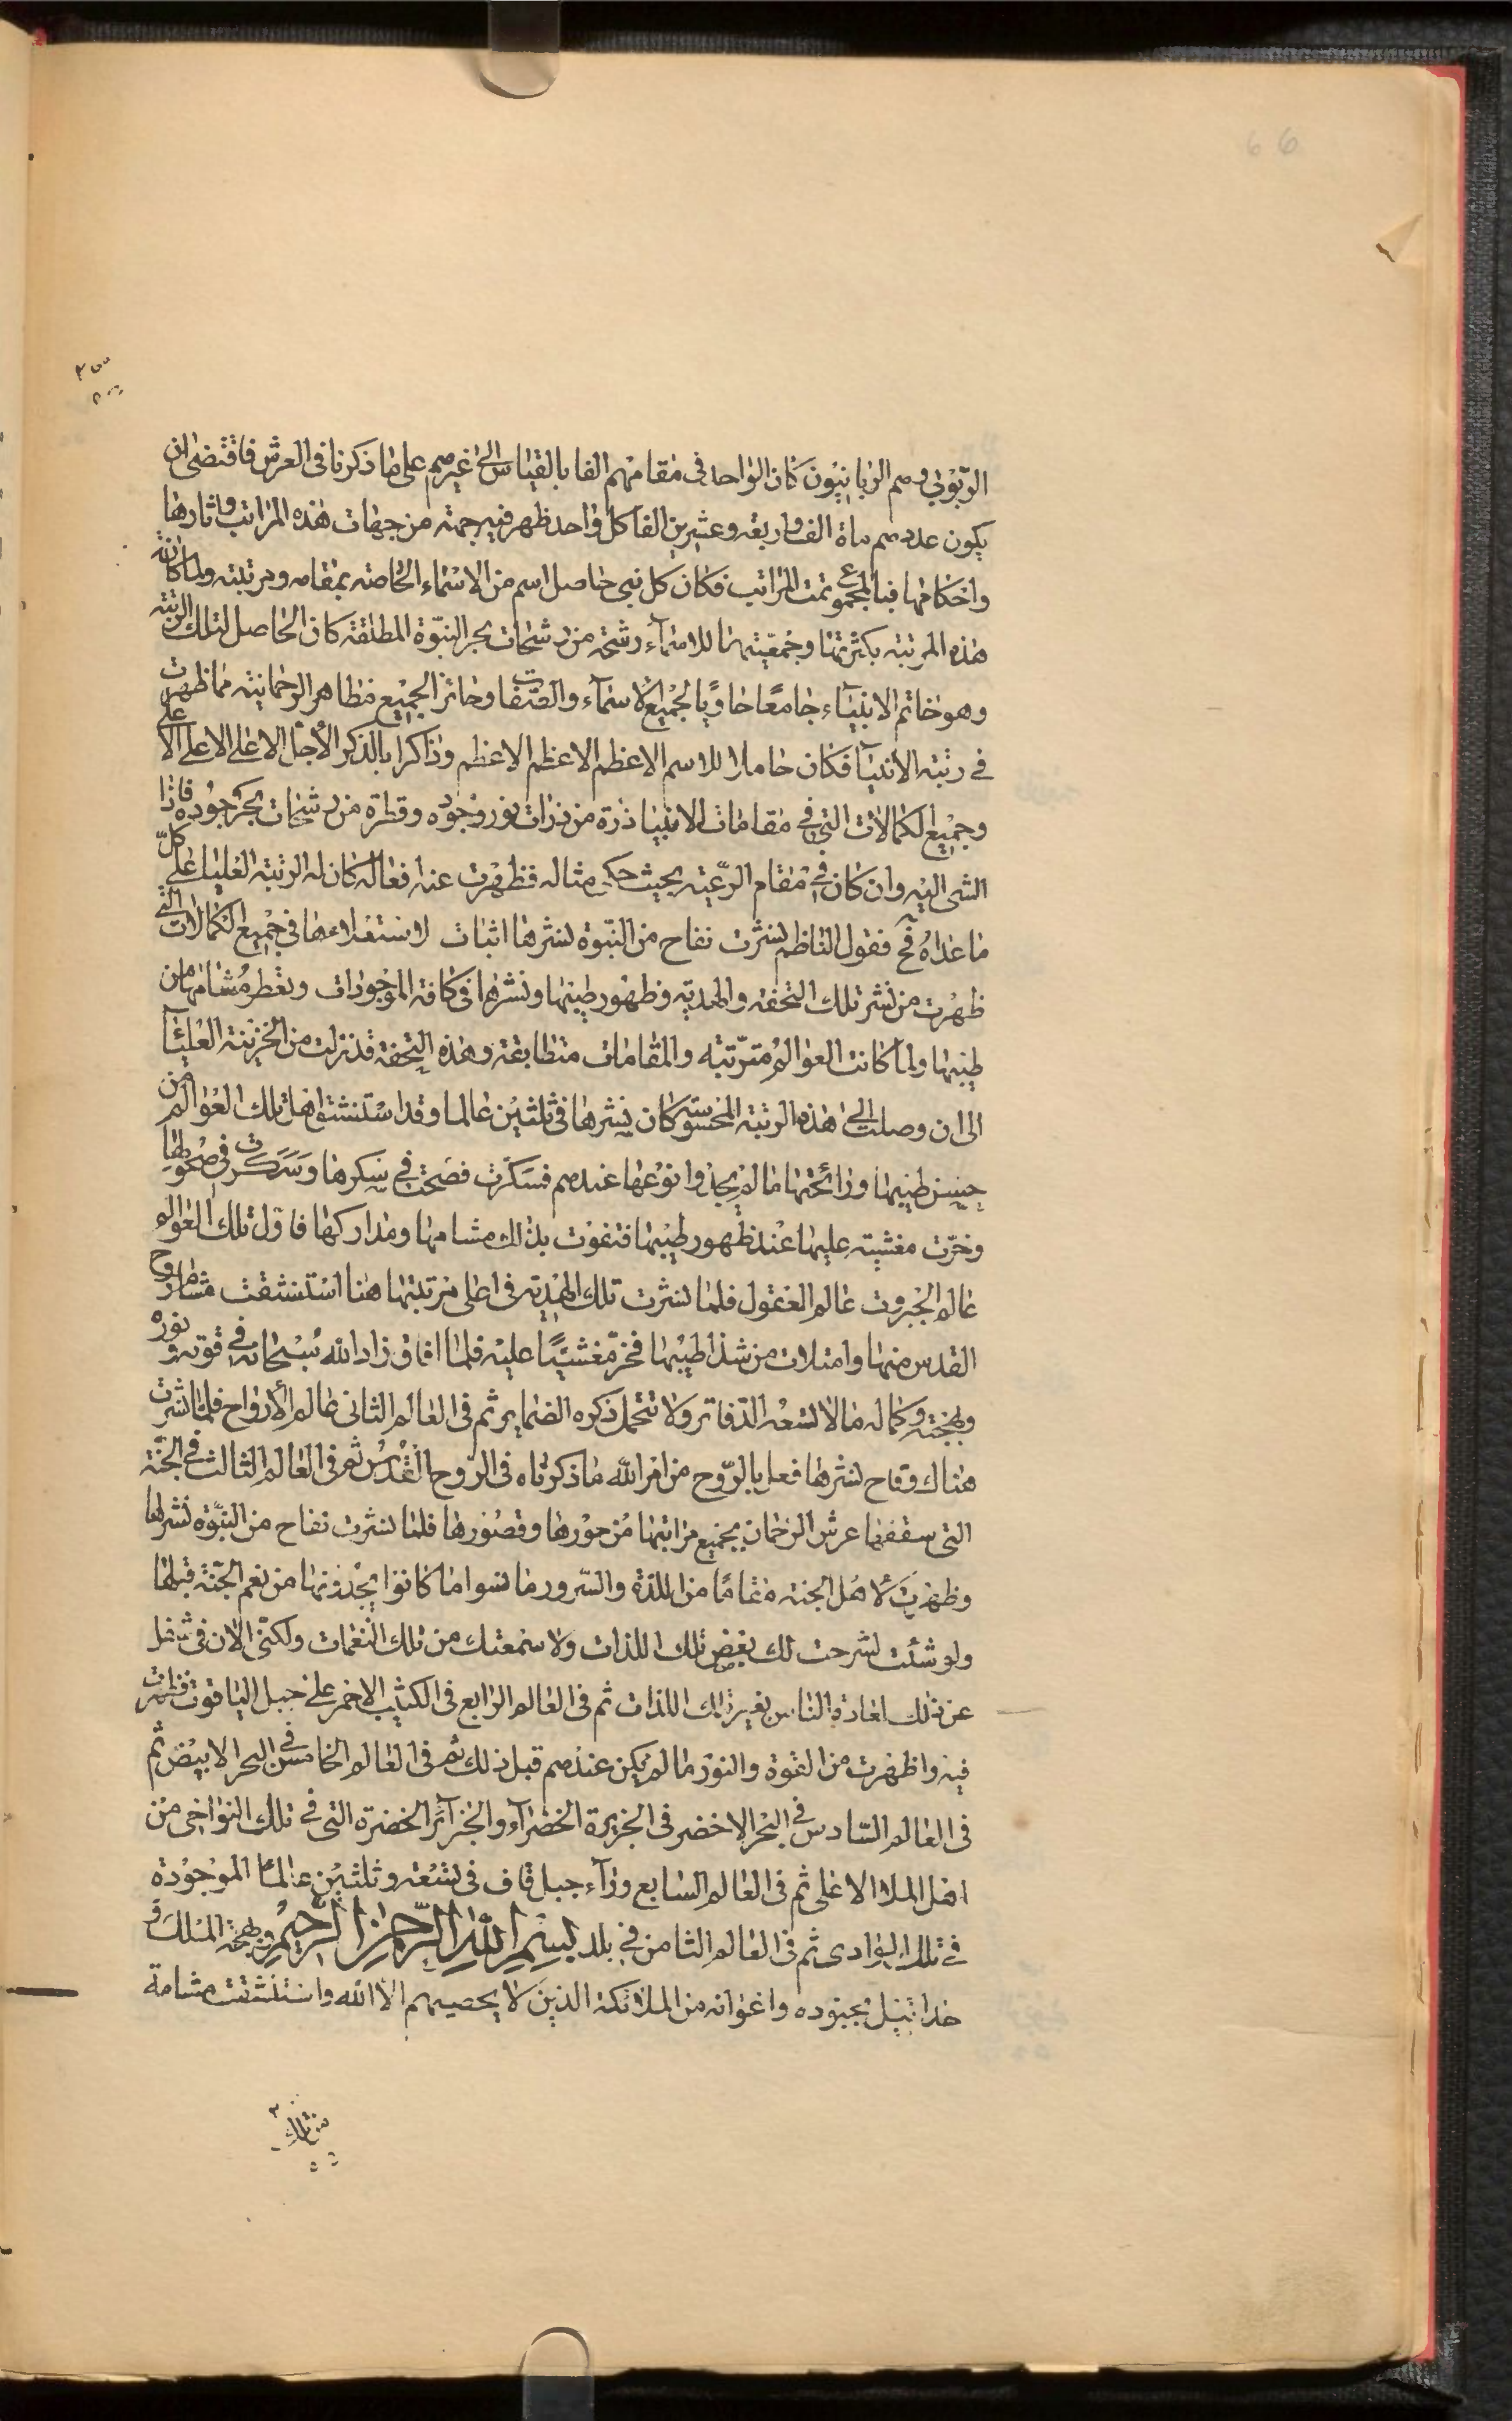 66
الربوبى وهم الربانيون كان الواحد فى مقامهم الفا بالقياس الى غيرهم على ما ذكرنا فى العرش فاقتضى ان
يكون عددهم ماة الف واربعة وعشرين الفا كل واحد ظهر فيه جهة من جهات هذه المراتب واثارها
واحكامها فبالمجموع تمت المراتب فكان كل نبى حامل اسم من الاسماء الخاصة بمقامه ومرتبته ولما كانت
هذه المرتبة بكثرتها وجمعيتها للاسماء رشحة من رشحات بحر النبوة المطلقة كان الحاصل لتلك الرتبة
وهو خاتم الانبياء جامعًا حاويًا لجميع الاسماء والصفات وحائز الجميع مظاهر الرحمانية مما ظهرت
فى رتبة الانبيآ فكان حاملا للاسم الاعظم الاعظم الاعظم وذاكرا بالذكر الأجل الاعلى الاعلى الاعلى
وجميع الكمالات التى فى مقامات الانبيا ذرة من ذرات نور وجوده وقطرة من رشحات بحر جوده فاذا
الشى اليه وان كان فى مقام الرعية بحيث حكى مثاله فظهرت عنه افعاله كان له الرتبة العليا على كل
ما عداه فح فقول الناظم نشرت نفاح من النبوة نشرها اثبات لاستعلاءها فى جميع الكمالات التى
ظهرت من نشر تلك التحفة والهدية وظهور طيبها ونشرها فى كافة الموجودات وتعطر مشامها من
طيبها ولما كانت العوالم مترتبة والمقامات متطابقة وهذه التحفة قد نزلت من الخزينة العليا
الى ان وصلت الى هذه الرتبة المحسوسة كان نشرها فى ثلثين عالما وقد استنشق اهل تلك العوالم من
حسن طيبها ورائحتها ما لم يجدوا نوعها عندهم فسكرت فصحت فى سكرها وسكرت فى صحوها
وخرت مغشية عليها عند ظهور طيبها فتقوت بذلك مشامها ومداركها فاول تلك العوالم
عالم الجبروت عالم العقول فلما نشرت تلك الهدية فى اعلى مرتبتها هنا استنشقت مشام روح
القدس منها وامتلات من شذا طيبها فخر مغشيًا عليه فلما افاق زاد الله سبحانه فى قوته ونوره
وبهجته وكماله ما لا تسعه الدفاتر ولا تتحمل ذكره الضماير ثم فى العالم الثانى عالم الأرواح فلما نشرت
هناك وفاح نشرها فعل بالروح من امر الله ما ذكرناه فى الروح القدس ثم فى العالم الثالث فى الجنة
التى سقفها عرش الرحمان بجميع مراتبها من حورها وقصورها فلما نشرت نفاح من النبوة نشرها
وظهرت لاهل الجنة مقامًا من اللذة والسرور ما نسوا ما كانوا يجدونها من نعم الجنة قبلها
ولو شئت لشرحت لك بعض تلك اللذات ولاسمعتك من تلك النغمات ولكنى الان فى شغل
عن ذلك لعادة الناس بغير تلك اللذات ثم فى العالم الرابع فى الكثيب الاحمر على جبل الياقوت فظهرت
فيه واظهرت من القوة والنور ما لم يكن عندهم قبل ذلك ثم فى العالم الخامس فى البحر الابيض ثم
فى العالم السادس فى البحر الاخضر فى الجزيرة الخضرآء والجزآئر الخضرة التى فى تلك النواحى من
اهل الملا الاعلى ثم فى العالم السابع ورآء جبل قاف فى تسعة وثلثين عالما الموجودة
فى تلك البوادى ثم فى العالم الثامن فى بلد بسم الله الرحمن الرحيم الملك
بجنوده واعوانه من الملائكة الذين لا يحصيهم الا الله واستنشقت مشامة